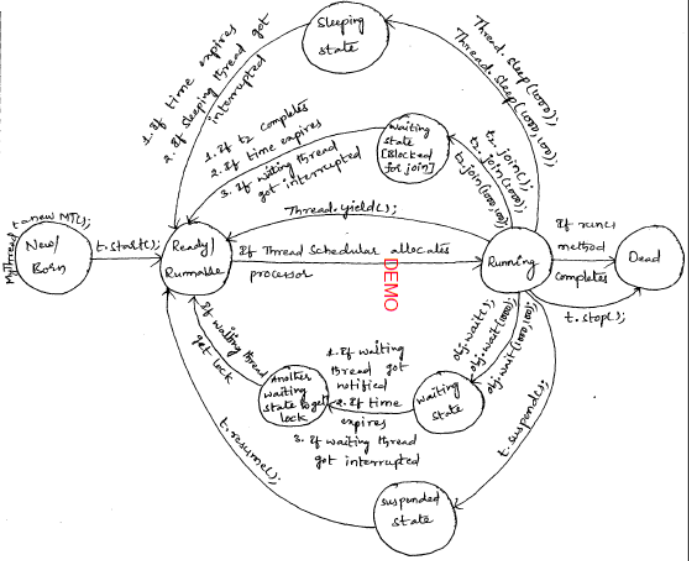 Sleeping
state
1. If time expires
2. If sleeping thread got
interrupted
Thread.sleep(1000);
Thread.sleep(1000,100);
waiting
state
[Blocked
for join]
1. If t2 completes
2. If time expires
3. If waiting thread
got interrupted
t2.join();
t2.join(1000);
t2.join(1000,100);
Thread.yield();
MyThread t=new MT();
New/
Born
t.start();
Ready/
Runnable
If Thread Schedular allocates
processor
DEMO
Running
If run()
method
completes
Dead
t.stop();
If waiting thread
get lock
Another
waiting
state to get
lock
1. If waiting
thread got
notified
2. If time
expires
3. If waiting thread
got interrupted
waiting
state
obj.wait();
obj.wait(1000);
obj.wait(1000,100);
t.suspend();
t.resume();
suspended
state